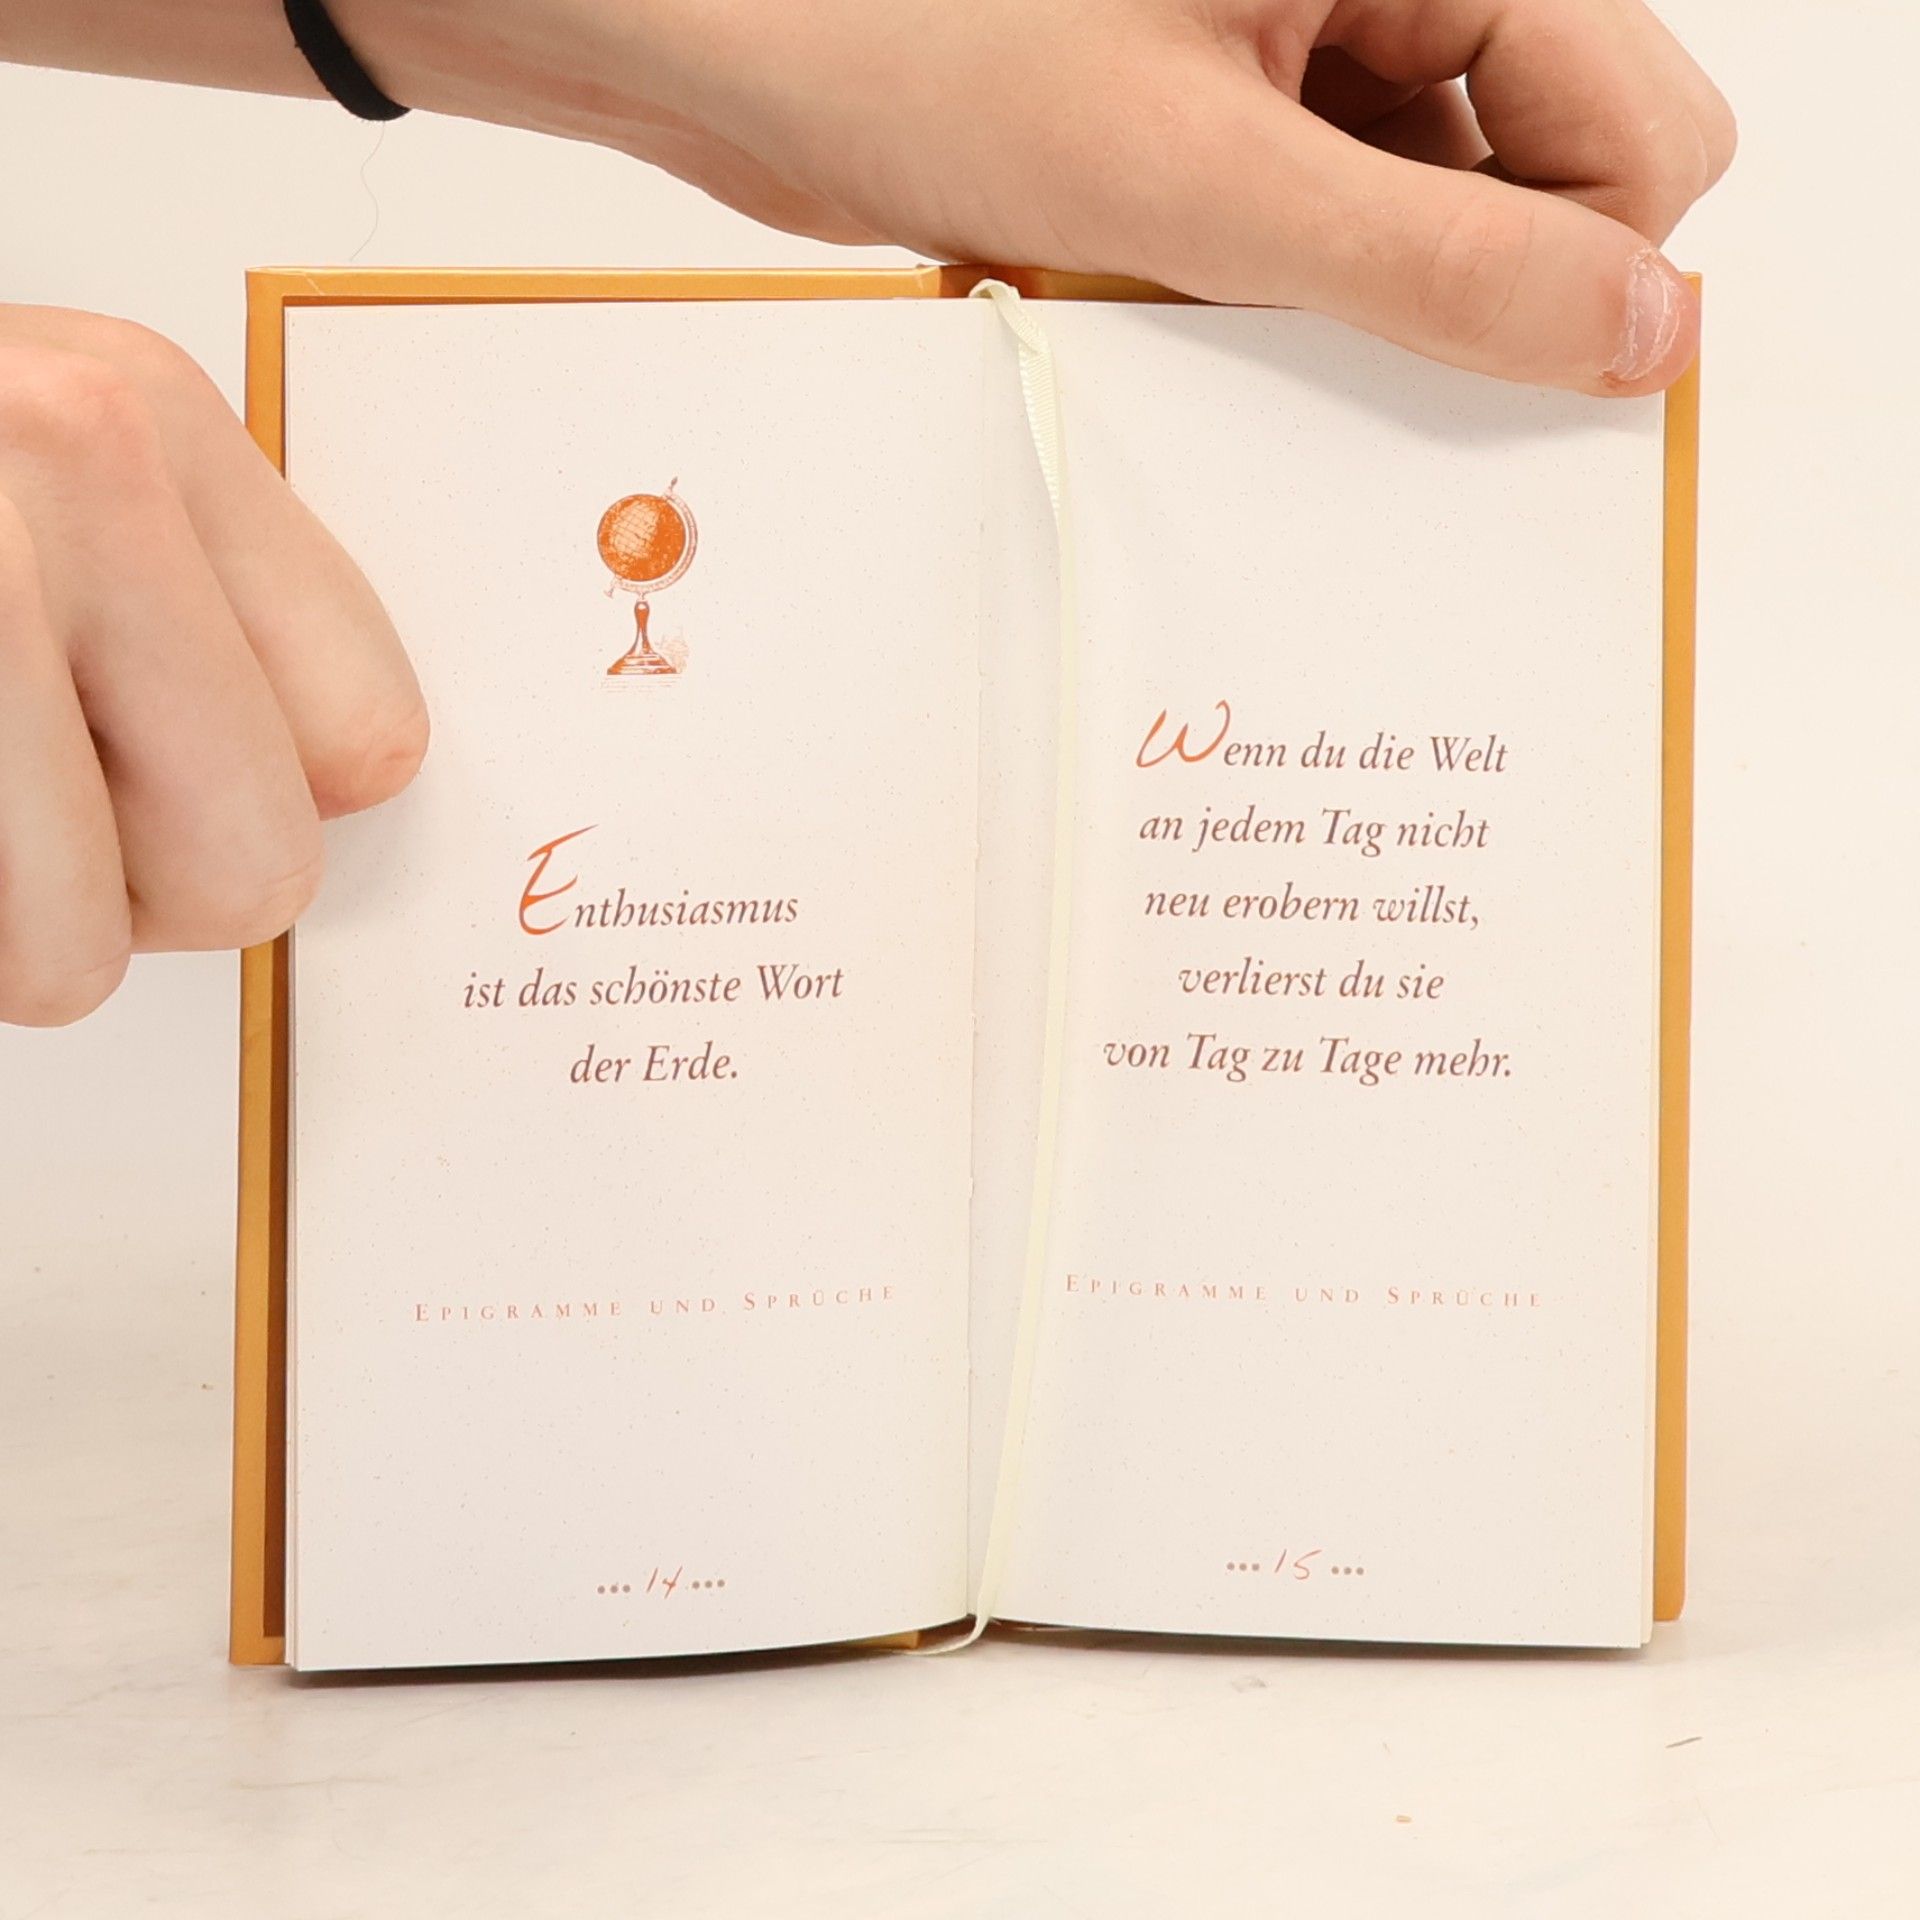 Enthusiasmus
ist das schönste Wort
der Erde.
Epigramme und Sprüche
••• 14 •••
Wenn du die Welt
an jedem Tag nicht
neu erobern willst,
verlierst du sie
von Tag zu Tage mehr.
Epigramme und Sprüche
••• 15 •••